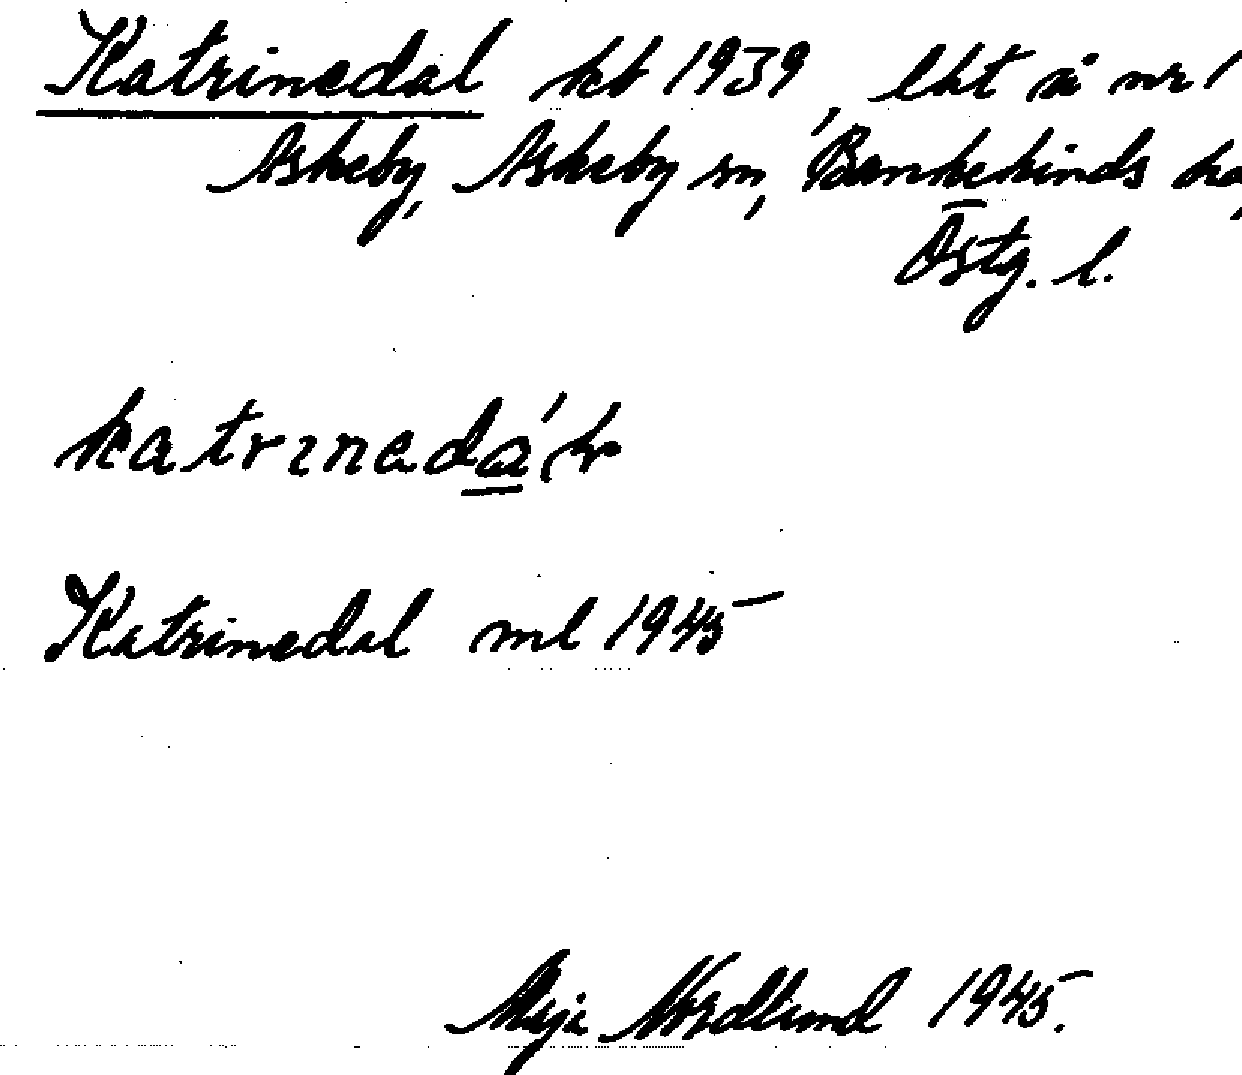 Katrinedal kb 1939, lht å nr 1
Askeby, Askeby sn, Bankekinds hd,
Östg. l.
katrɪnedɑ́
Katrinedal ml 1945
Maja Nordlund 1945.